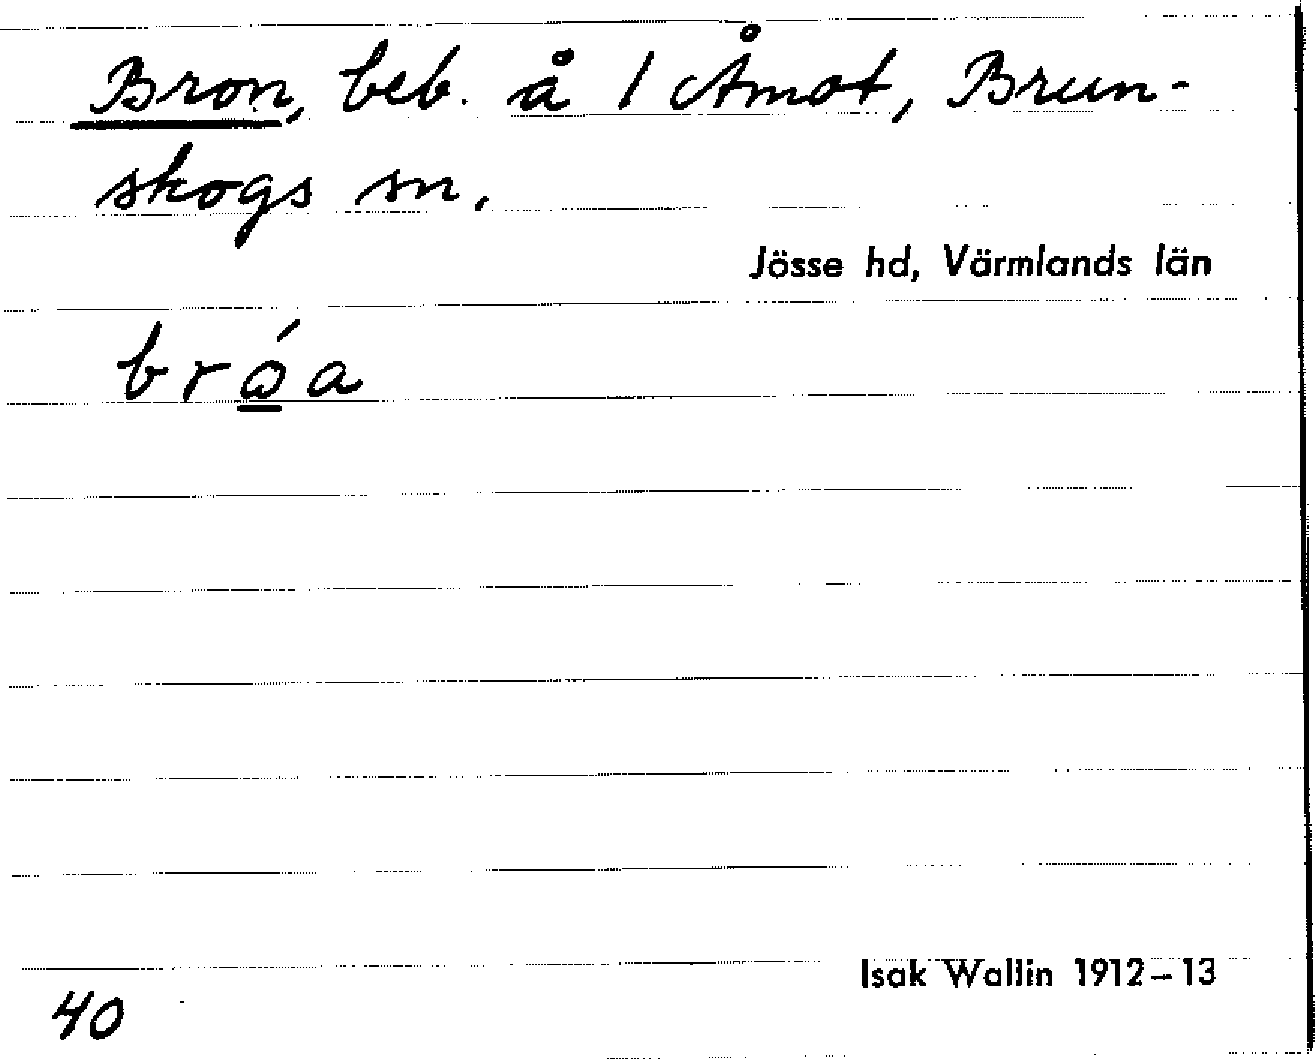 Bron, beb. å 1 Åmot, Brun-
skogs sn.
Jösse hd, Värmlands län
br<u>ǿ</u>a
Isak Wallin 1912–13
40